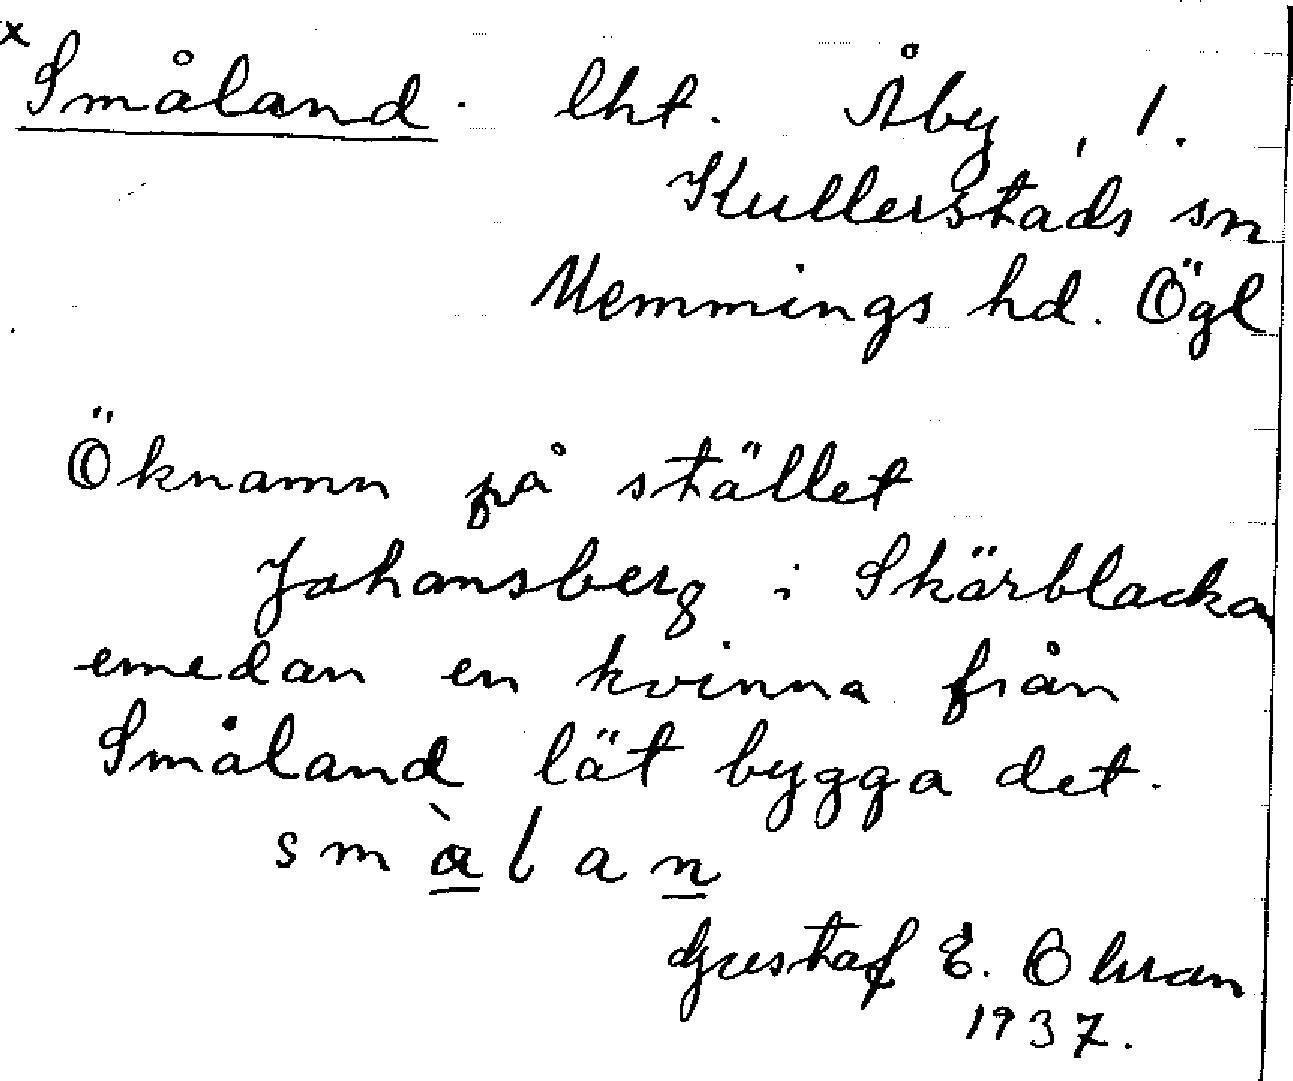 x
Småland. lht. Åby, 1.
Kullerstads sn
Memmings hd. Ögl
Öknamn på stället
Johansberg i Skärblacka
emedan en kvinna från
Småland lät bygga det.
smàlan
Gustaf E. Ohran
1937.